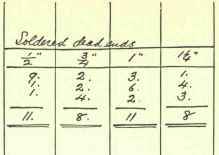 Soldered dead ends
1/2" 3/4" 1" 1 1/4"
9. 2. 3. 1.
1. 2. 6. 4.
1. 4. 2. 3.
11. 8. 11 8